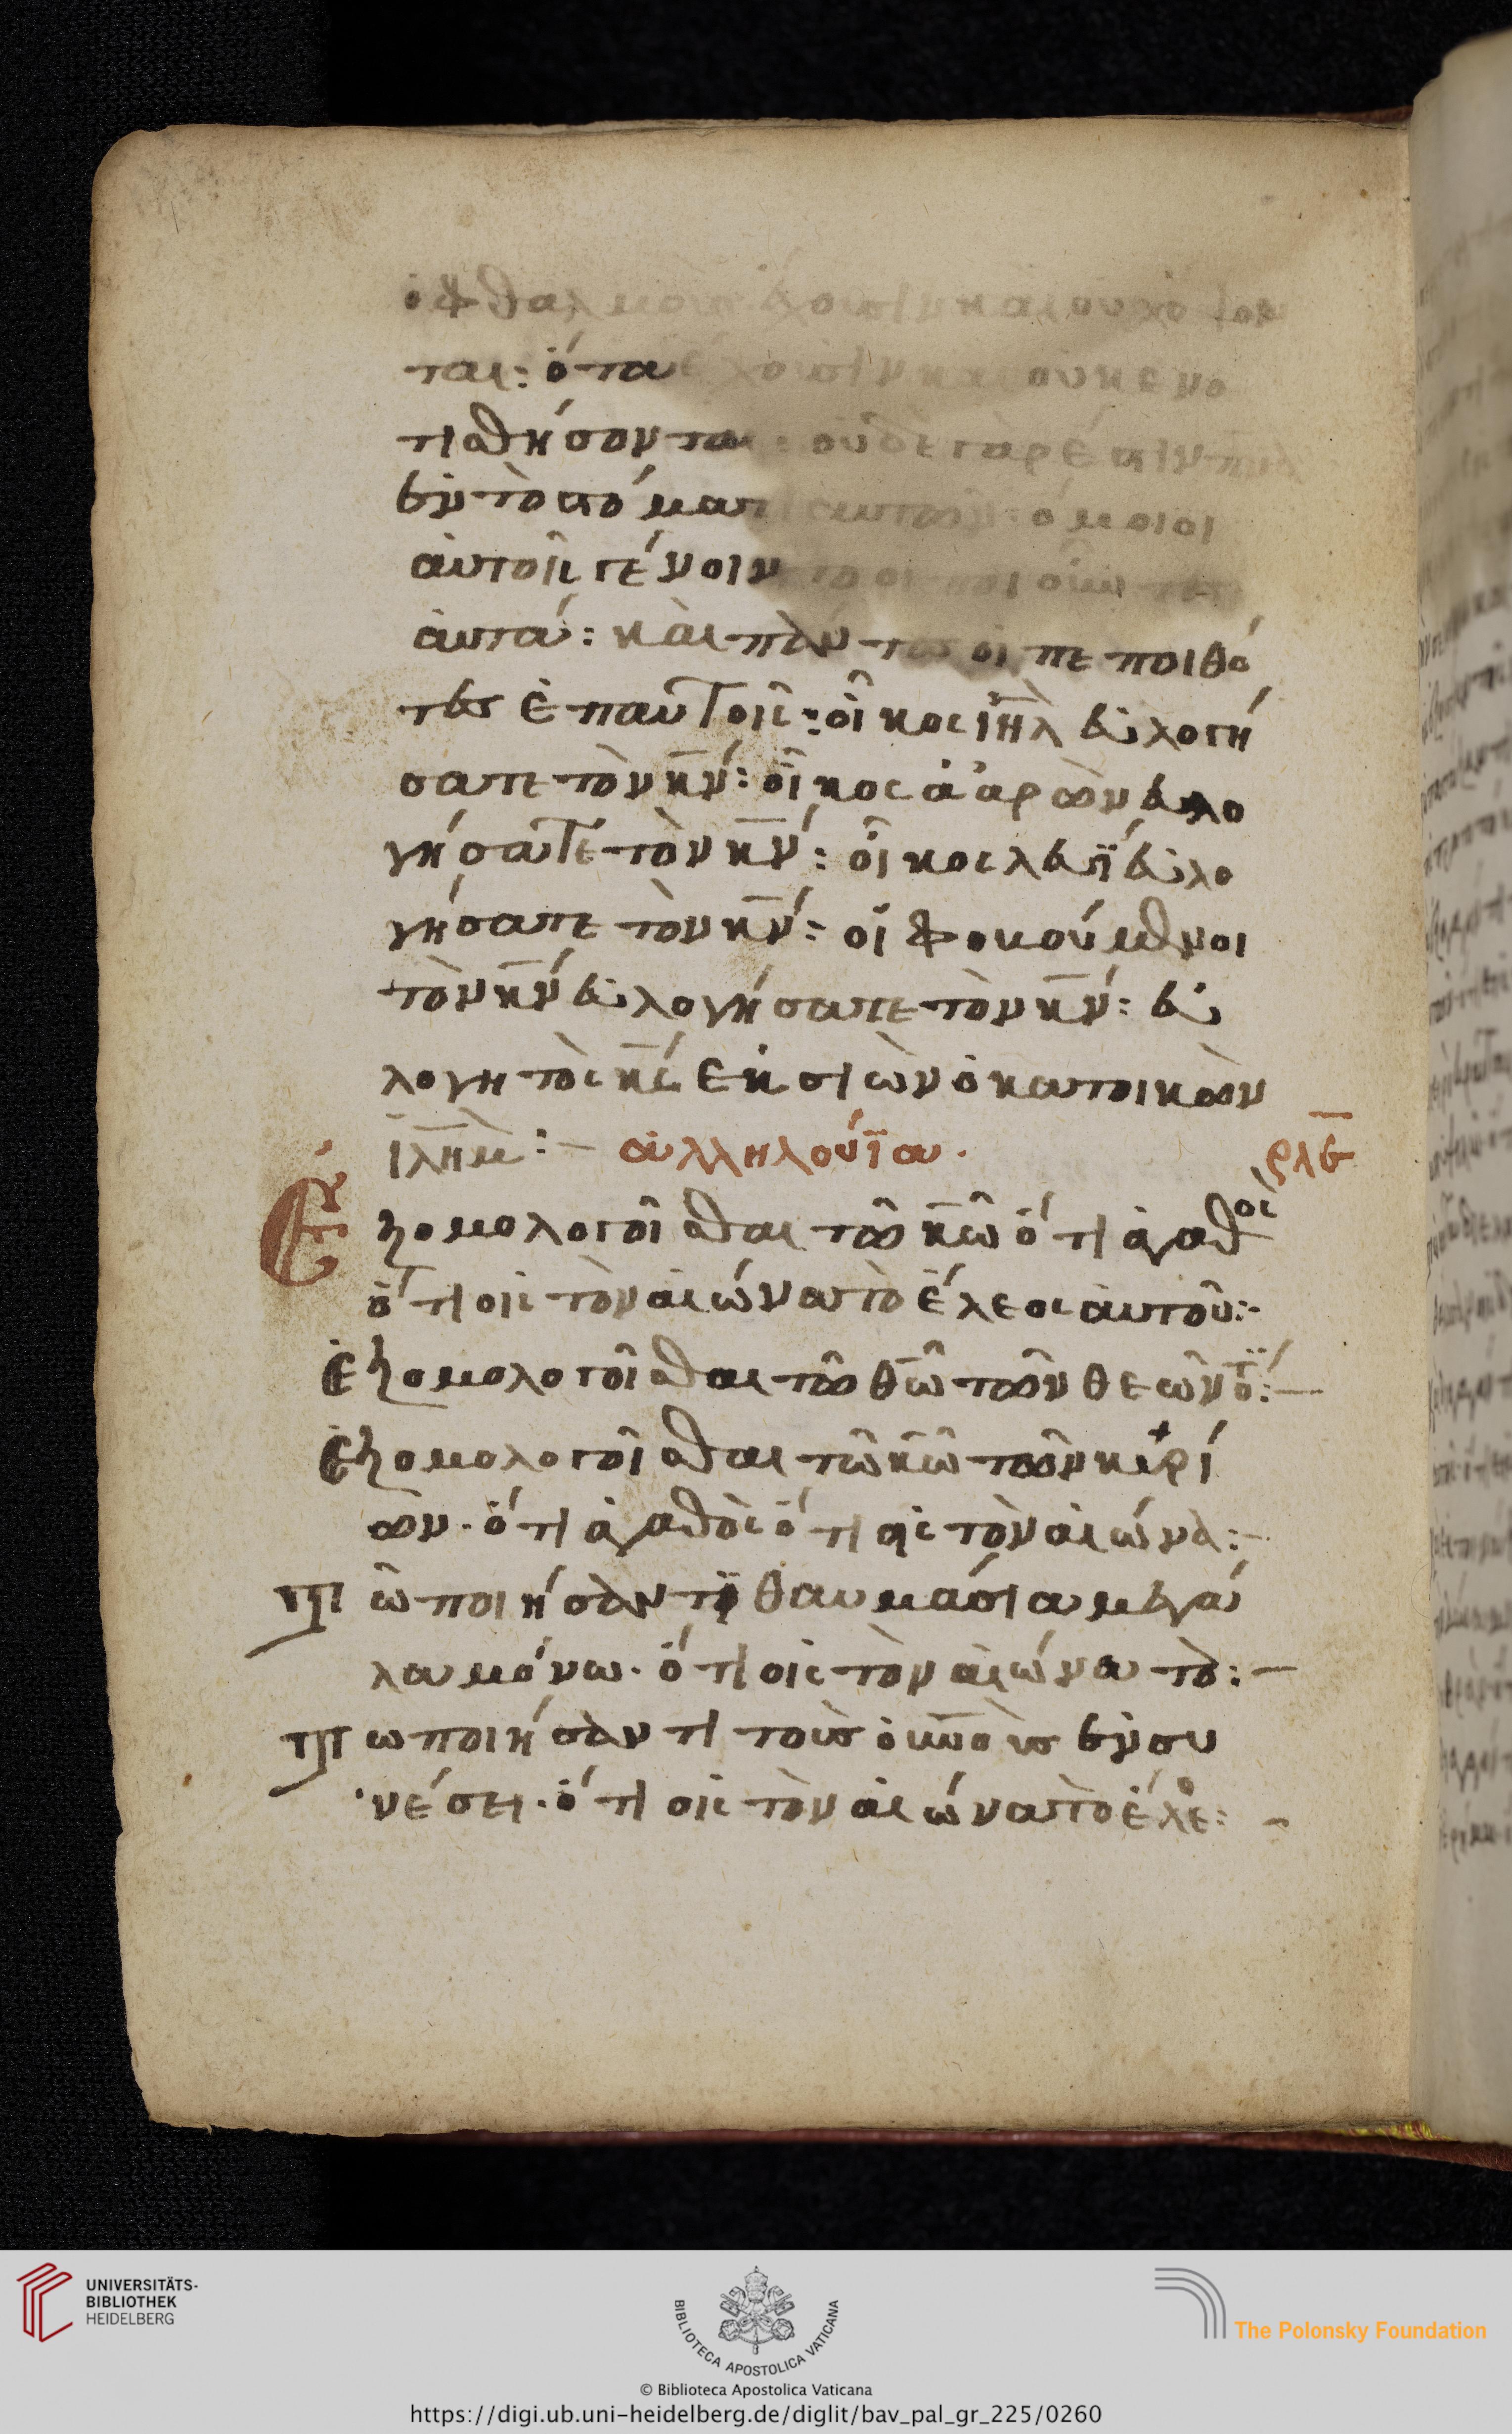 ὀφθαλμοὺς ἔχουσιν καὶ οὐχ ὄψον
ται: ὅτα ἔχουσιν καὶ οὐκ ἐνο
τισθήσονται: οὐδὲ γὰρ ἔστιν πνα
ἐν τὸ στόματι αὐτῶν: ὅμοιοι
ἀυτοῖς γένοιντο οἱ ποιοῦντες
ἀυτά: κὰι πάντες οἱ πεποιθό
τες ἐπαὐτοῖς: οἶκος ιη̅λ ἐυλογή
σατε τὸν κ̅ν: οἶκος ἀαρὼν ἐυλο
γήσατε τὸν κ̅ν: οἶκος λευῒ ἐυλο
γήσατε τὸν κ̅ν: οἱ φοκούμενοι
τὸν κ̅ν ἐυλογήσατε τὸν κ̅ν: ἐυ
λογητὸς κ̅ς ἐκ σιὼν ὁ κατοικῶν
ιλη̅μ: ἀλληλούϊα.
ρλε̅
Ἐξομολογοῖσθαι τῶ κ̅ω ὅτι ἀγαθὸς
ὅτι οἰς τὸν ἀιώνα τὸ ἔλεος ἀυτοῦ:
Ἐξομολογοῖσθαι τῶ θ̅ω τῶν θεῶν ὅ̈τ:
Ἐξομολογοῖσθαι τῶ κ̅ω τῶν κυρί
ων. ὅτι ἀγαθὸς ὅτι οἰς τὸν ἀιώνα:
Τῶ ποιήσαντϊ θαυμάσια μεγά
λα μόνω. ὅτι οἰς τὸν ἀιώνα τὸ:
Τω ποιήσαντι τοὺς ὀυνοὺς ἐν συ
νέσει. ὅτι οἰς τὸν ἀιώνα τὸ ἔλε:
UNIVERSITÄTS-
BIBLIOTHEK
HEIDELBERG
BIBLIOTECA APOSTOLICA VATICANA
The Polonsky Foundation
© Biblioteca Apostolica Vaticana
https://digi.ub.uni-heidelberg.de/diglit/bav_pal_gr_225/0260